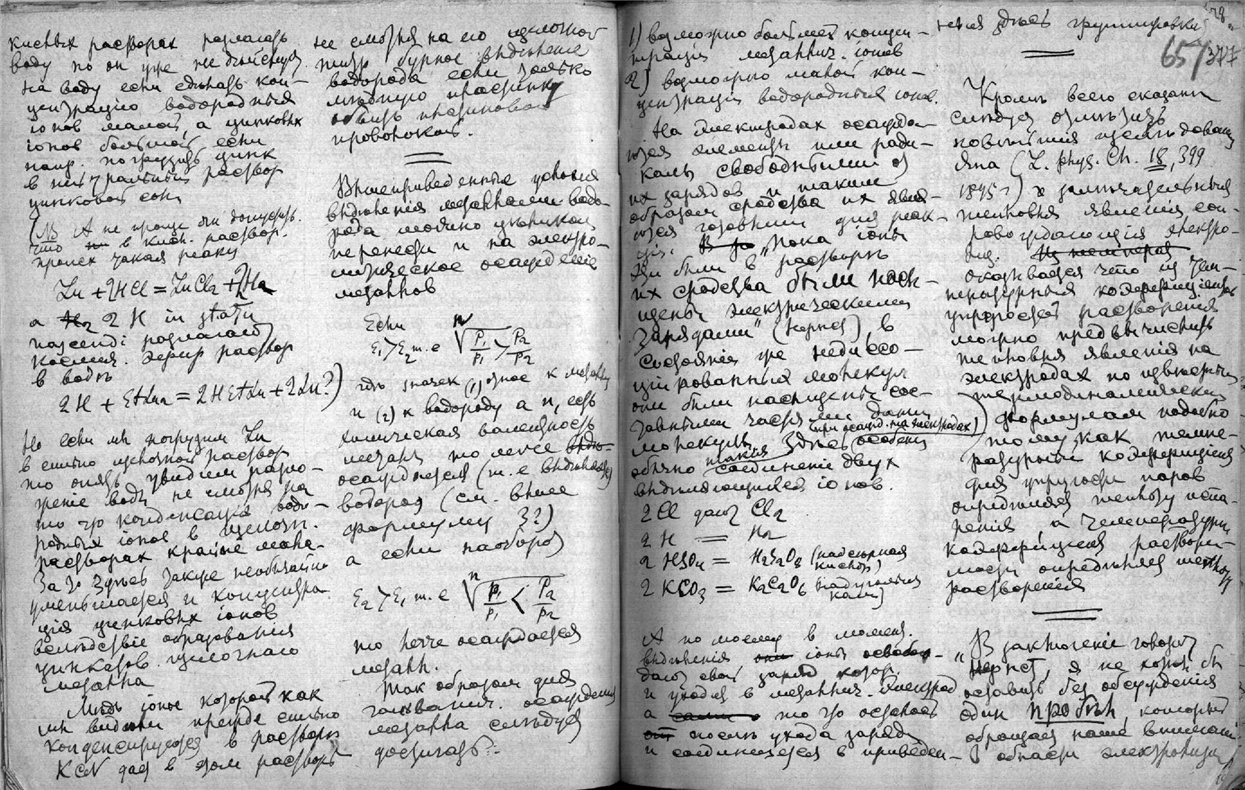 кислых растворах разлагать
воду но он уже не действует
на воду если сделать кон-
центрацию водородных
іонов малой, а цинковых
іонов большой, если
напр. погрузить цинк
в нейтральный раствор
цинковой соли
А не проще ли допустить
что в кисл. раствор.
прошел такая реакц
Zn + 2HCl = ZnCl2 + 2H
а 2 H in statu
nascendi разлагает
раствор
в водѣ
2H + = 2H + 2Zn?)
Но если мы погрузим Zn
в сильно щелочной раствор
то опять увидим разло-
жение воды не смотря на
то что концентрація водо-
родных іонов в щелочн.
растворах крайне мала.
За то здѣсь также необычайно
уменьшается и концентра-
ція цинковых іонов
вслѣдствіе образованія
цинков. щелочнаго
металла
Мѣдь іоны которой как
мы видѣли прежде сильно
конденсируются в растворѣ
KCN дает в этом растворѣ
не смотря на его щелочной
бурное выдѣленіе
водорода если только
платиновой
проволокой.
Вышеприведенные условія
выдѣленія металлами водо-
рода можно цѣликом
перенести и на электро-
литическое осажденіе
металлов
Если
E1 > E2 т.е n√P1/p1 > P2/p2
гдѣ значек (1) относ. к металлу
и (2) к водороду а n, есть
химическая валентность
металла то легче
осаждается (т.е выдѣляется)
водород (см. выше
формулу 3?)
а если наоборот
E2 > E1 т.е n√P1/p1 < P2/p2
то легче осаждается
металл.
Так образом для
гальванич. осажденія
металла слѣдует
достигать:
1) возможно большей концен-
траціи металлич. іонов
2) возможно малой кон-
центраціи водородных іонов.
На электродах осажда-
ются элементы или ради-
калы свободными от
их зарядов и таким
образом сродства их явля-
ются готовыми для реак-
ціи. „Пока іоны
были в растворѣ
их сродства были насы-
щены электрическими
зарядами" (Нернст) в
состояніи же недиссо-
ціированных молекул
они были насыщены сос-
тавными частями данн.
молекулы. Здѣсь (при осажд. на электродах)
обычно соединеніе двух
выдѣляющихся іонов.
2 Cl дают Cl2
2 H = H2
2 HSO4 = H2S2O8 (надсѣрная
кислота)
2 KCO3 = K2C2O6 (надуглекисл.
кали)
А по моему в момент
выдѣленія іоны
дают свой заряд котор.
и уходит в металлич. электрод
а то что остается
послѣ ухода заряд.
и соединяется в приведен-
ныя здѣсь группировки
28
657 377
Кромѣ всего сказан.
слѣдует отмѣтить
новѣйшія изслѣдован.
Яна (Z. phys. Ch. 18, 399
1895 г) замѣчательныя
тепловыя явленія соп-
ровождающія электро-
лиз.
оказывается что из тем-
пературных коэффиціентов
упругости растворенія
можно предвычислить
тепловыя явленія на
электродах по извѣстным
термодинамическ.
формулам подобно
тому как темпе-
ратурный коэффиціент
для упругости паров
опредѣляет теплоту испа-
ренія а температурн.
коэффиціент раствори-
мости опредѣляет теплоту
растворенія
„В заключеніе говорит
Нернст, я не хотѣл бы
оставить без обсужденія
один пробѣл, который
обращает наше вниманіе
в области электролиза